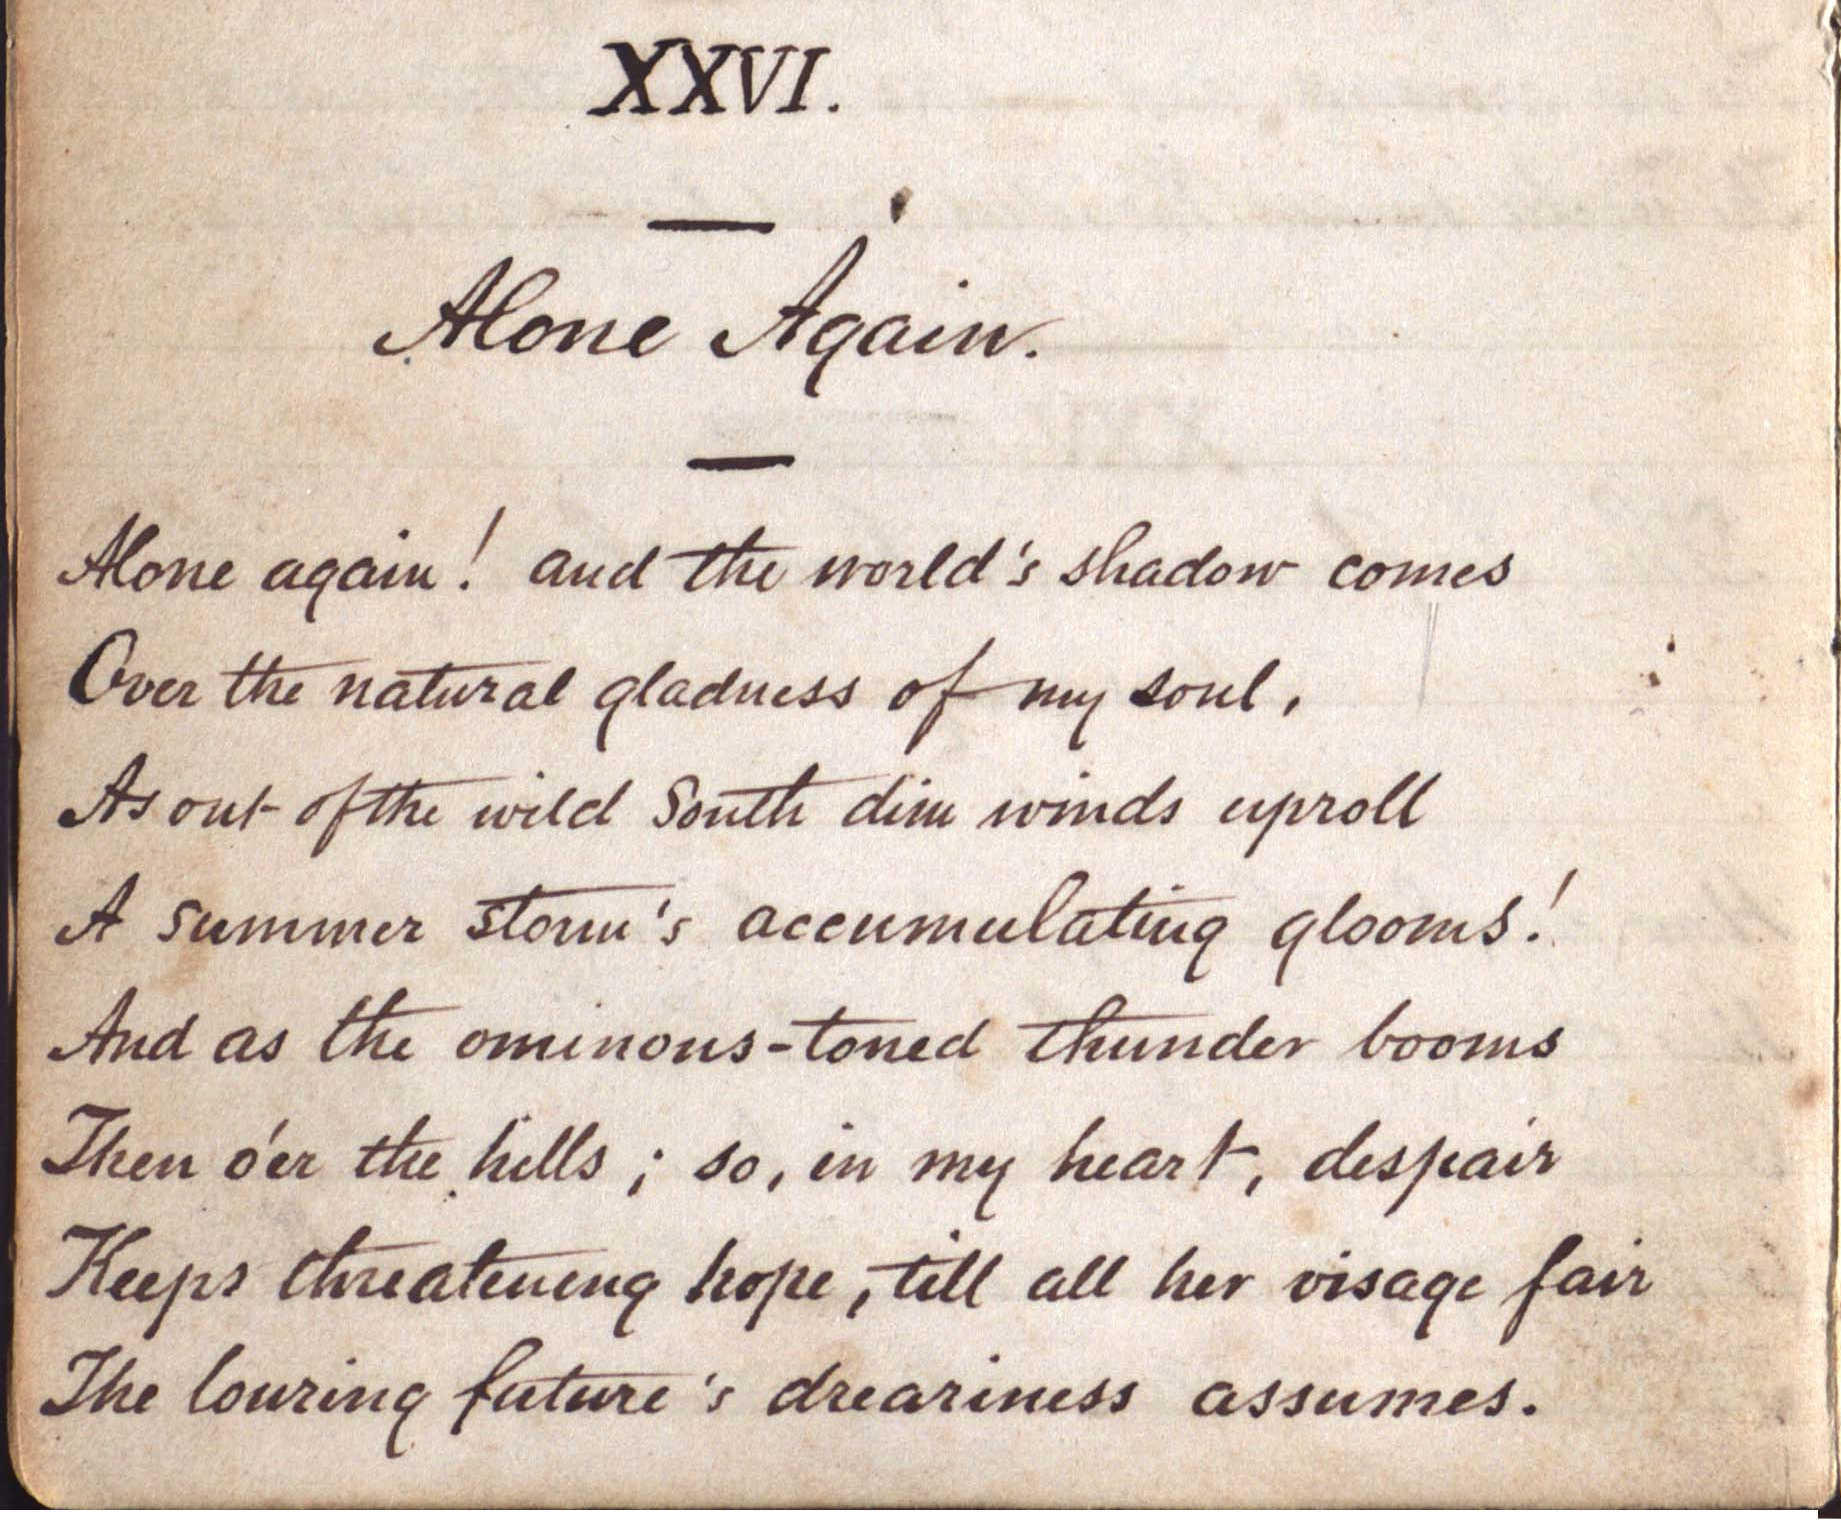 XXVI.
Alone Again.
Alone again! and the world's shadow comes
Over the natural gladness of my soul,
As out of the wild South dim winds uproll
A summer storm's accumulating glooms!
And as the ominous-toned thunder booms
Then o'er the hills; so, in my heart, despair
Keeps threatening hope, till all her visage fair
The louring future's dreariness assumes.